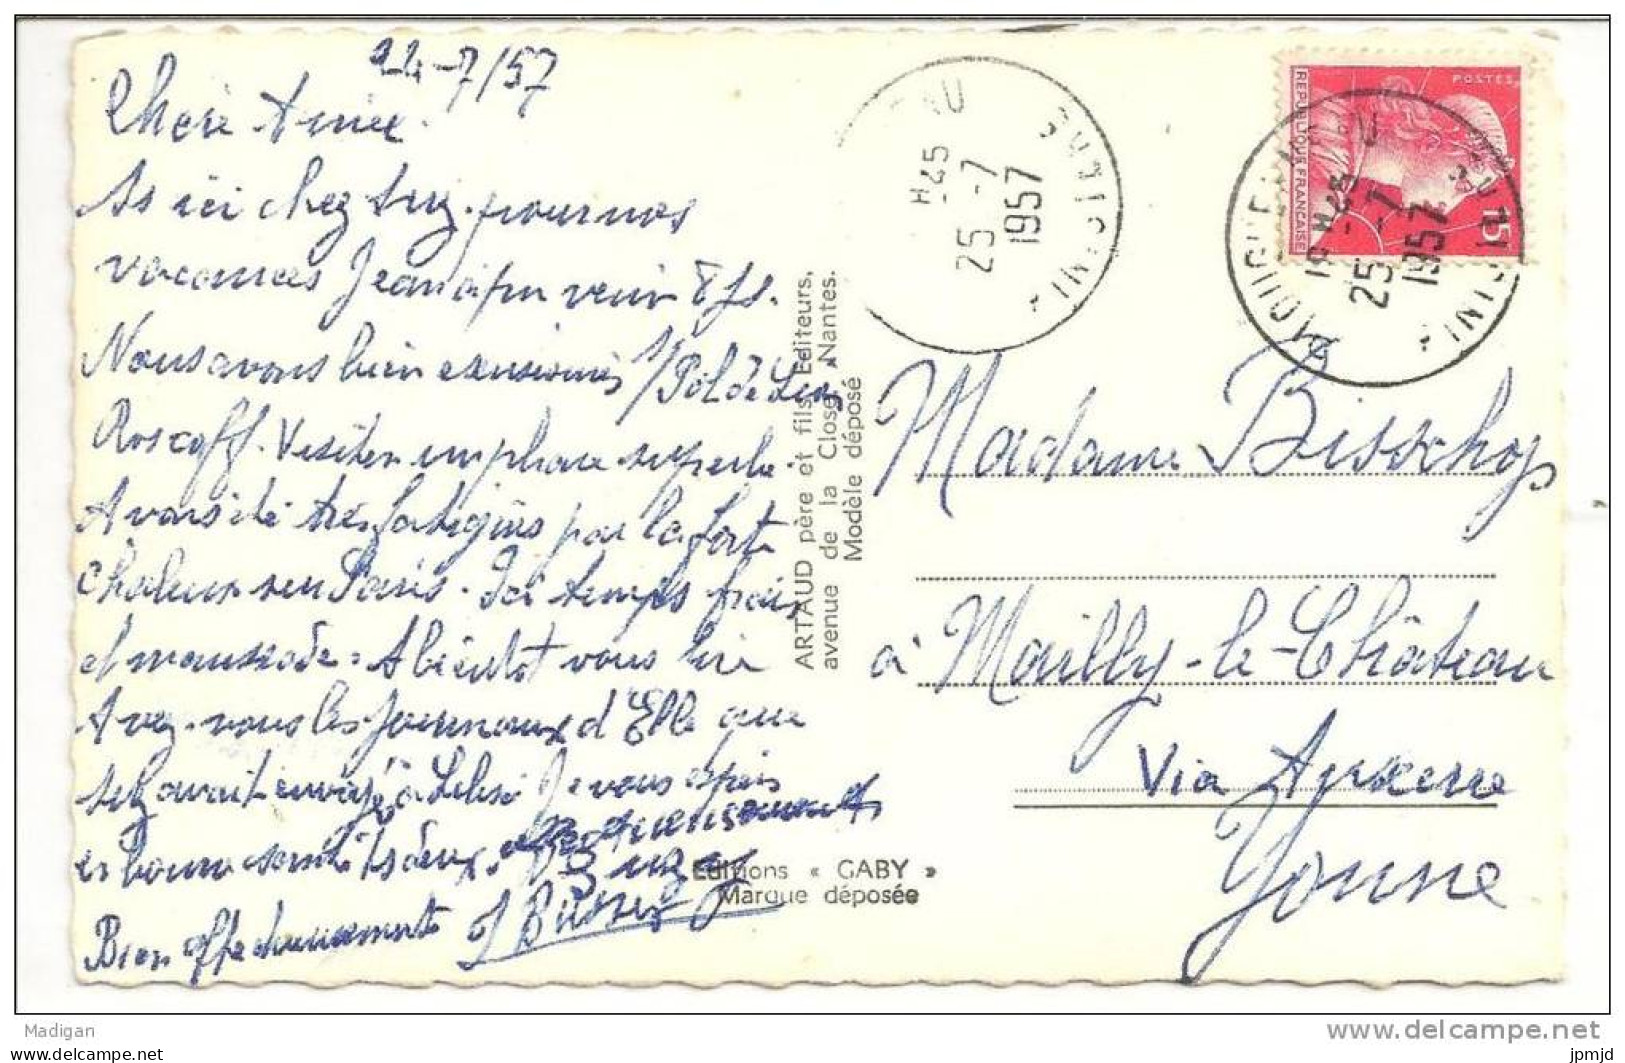 24-7/57
Chère Amie
ici chez Suz. pour nos
vacances Jean venir 8 js.
Nous avons bien excursionnés S/ Pol de Léon
Roscoff. Visiter un phare superbe.
Avons été très fatigués par la forte
chaleur sur Paris. Ici temps frais
et maussade. A bientôt vous lire
Avez-vous les journaux d'Elle que
Suz avait envoyé à Je vous espère
en bonne santé ts deux.
Bien affectueusement
ARTAUD père et fils Editeurs,
avenue de la Close Nantes.
Modèle déposé
Editions « GABY »
Marque déposée
H-45
25 -7
1957
POSTES
REPUBLIQUE FRANÇAISE
15
19 H-45
25 -7
1957
Madame Bisschop
à Mailly-le-Château
Via Auxerre
Yonne
Madigan
delcampe.net
delcampe.net
jpmjd